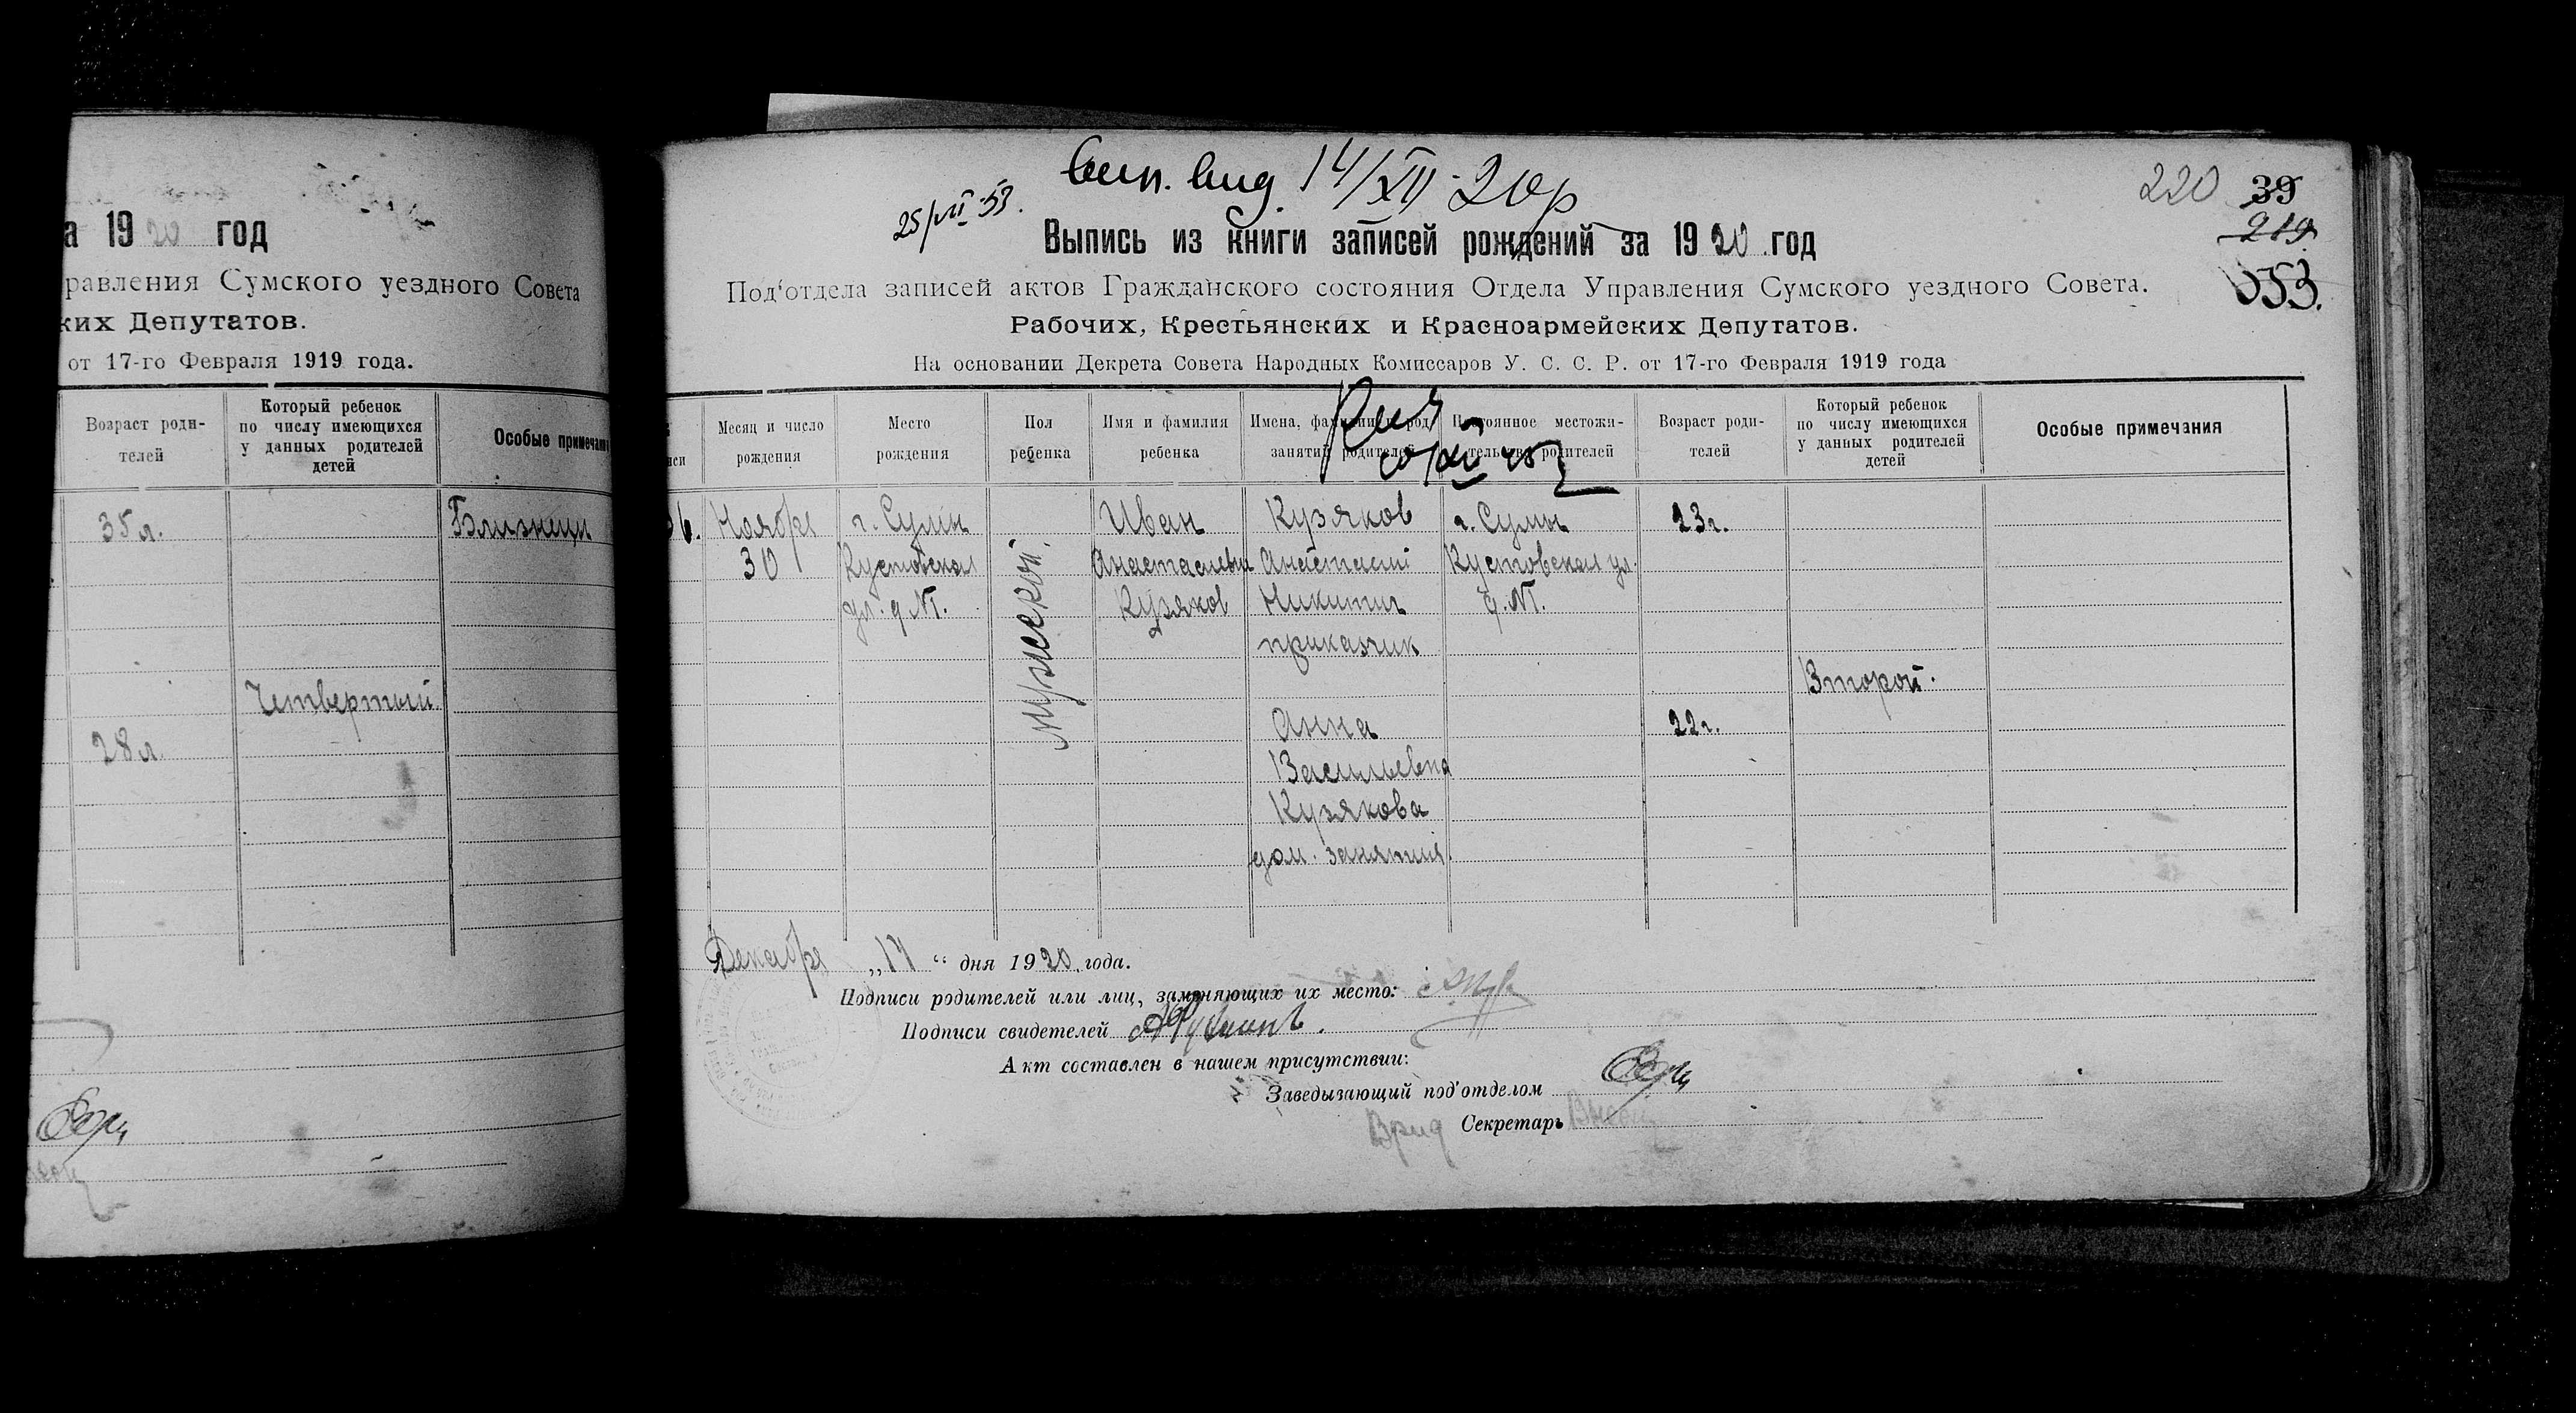 а 1920 год
равления Сумского уездного Совета
ких Депутатов.
от 17-го Февраля 1919 года.
Возраст роди-
телей
Который ребенок
по числу имеющихся
у данных родителей
детей
Особые примечани
35 л.
Близнецы
Четвертый
28 л.
вып. выд. 14/XII-20 р
25/VII-53.
220
39
219
353.
Выпись из книги записей рождений за 1920 год
Под‘отдела записей актов Гражданского состояния Отдела Управления Сумского уездного Совета.
Рабочих, Крестьянских и Красноармейских Депутатов.
На основании Декрета Совета Народных Комиссаров У. С. С. Р. от 17-го Февраля 1919 года
Месяц и число
рождения
Место
рождения
Пол
ребенка
Имя и фамилия
ребенка
Имена, фамилии и род
занятий родителей
Постоянное местожи-
тельство родителей
Возраст роди-
телей
Который ребенок
по числу имеющихся
у данных родителей
детей
Особые примечания
Ноября
30
г. Сумы
Кустовская
ул. д. №1.
Мужеской.
Иван
Анастасиевич
Кузяков
Кузяков
Анастасий
Никитич
приказчик
г. Сумы
Кустовская ул.
д. №1.
23 г.
Второй.
Анна
Васильевна
Кузякова
дом. занятия
22 г.
Декабря „14“ дня 1920 года.
Подписи родителей или лиц, заменяющих их место:
Подписи свидетелей
Акт составлен в нашем присутствии:
Заведызающий под‘отделом
Врид Секретарь